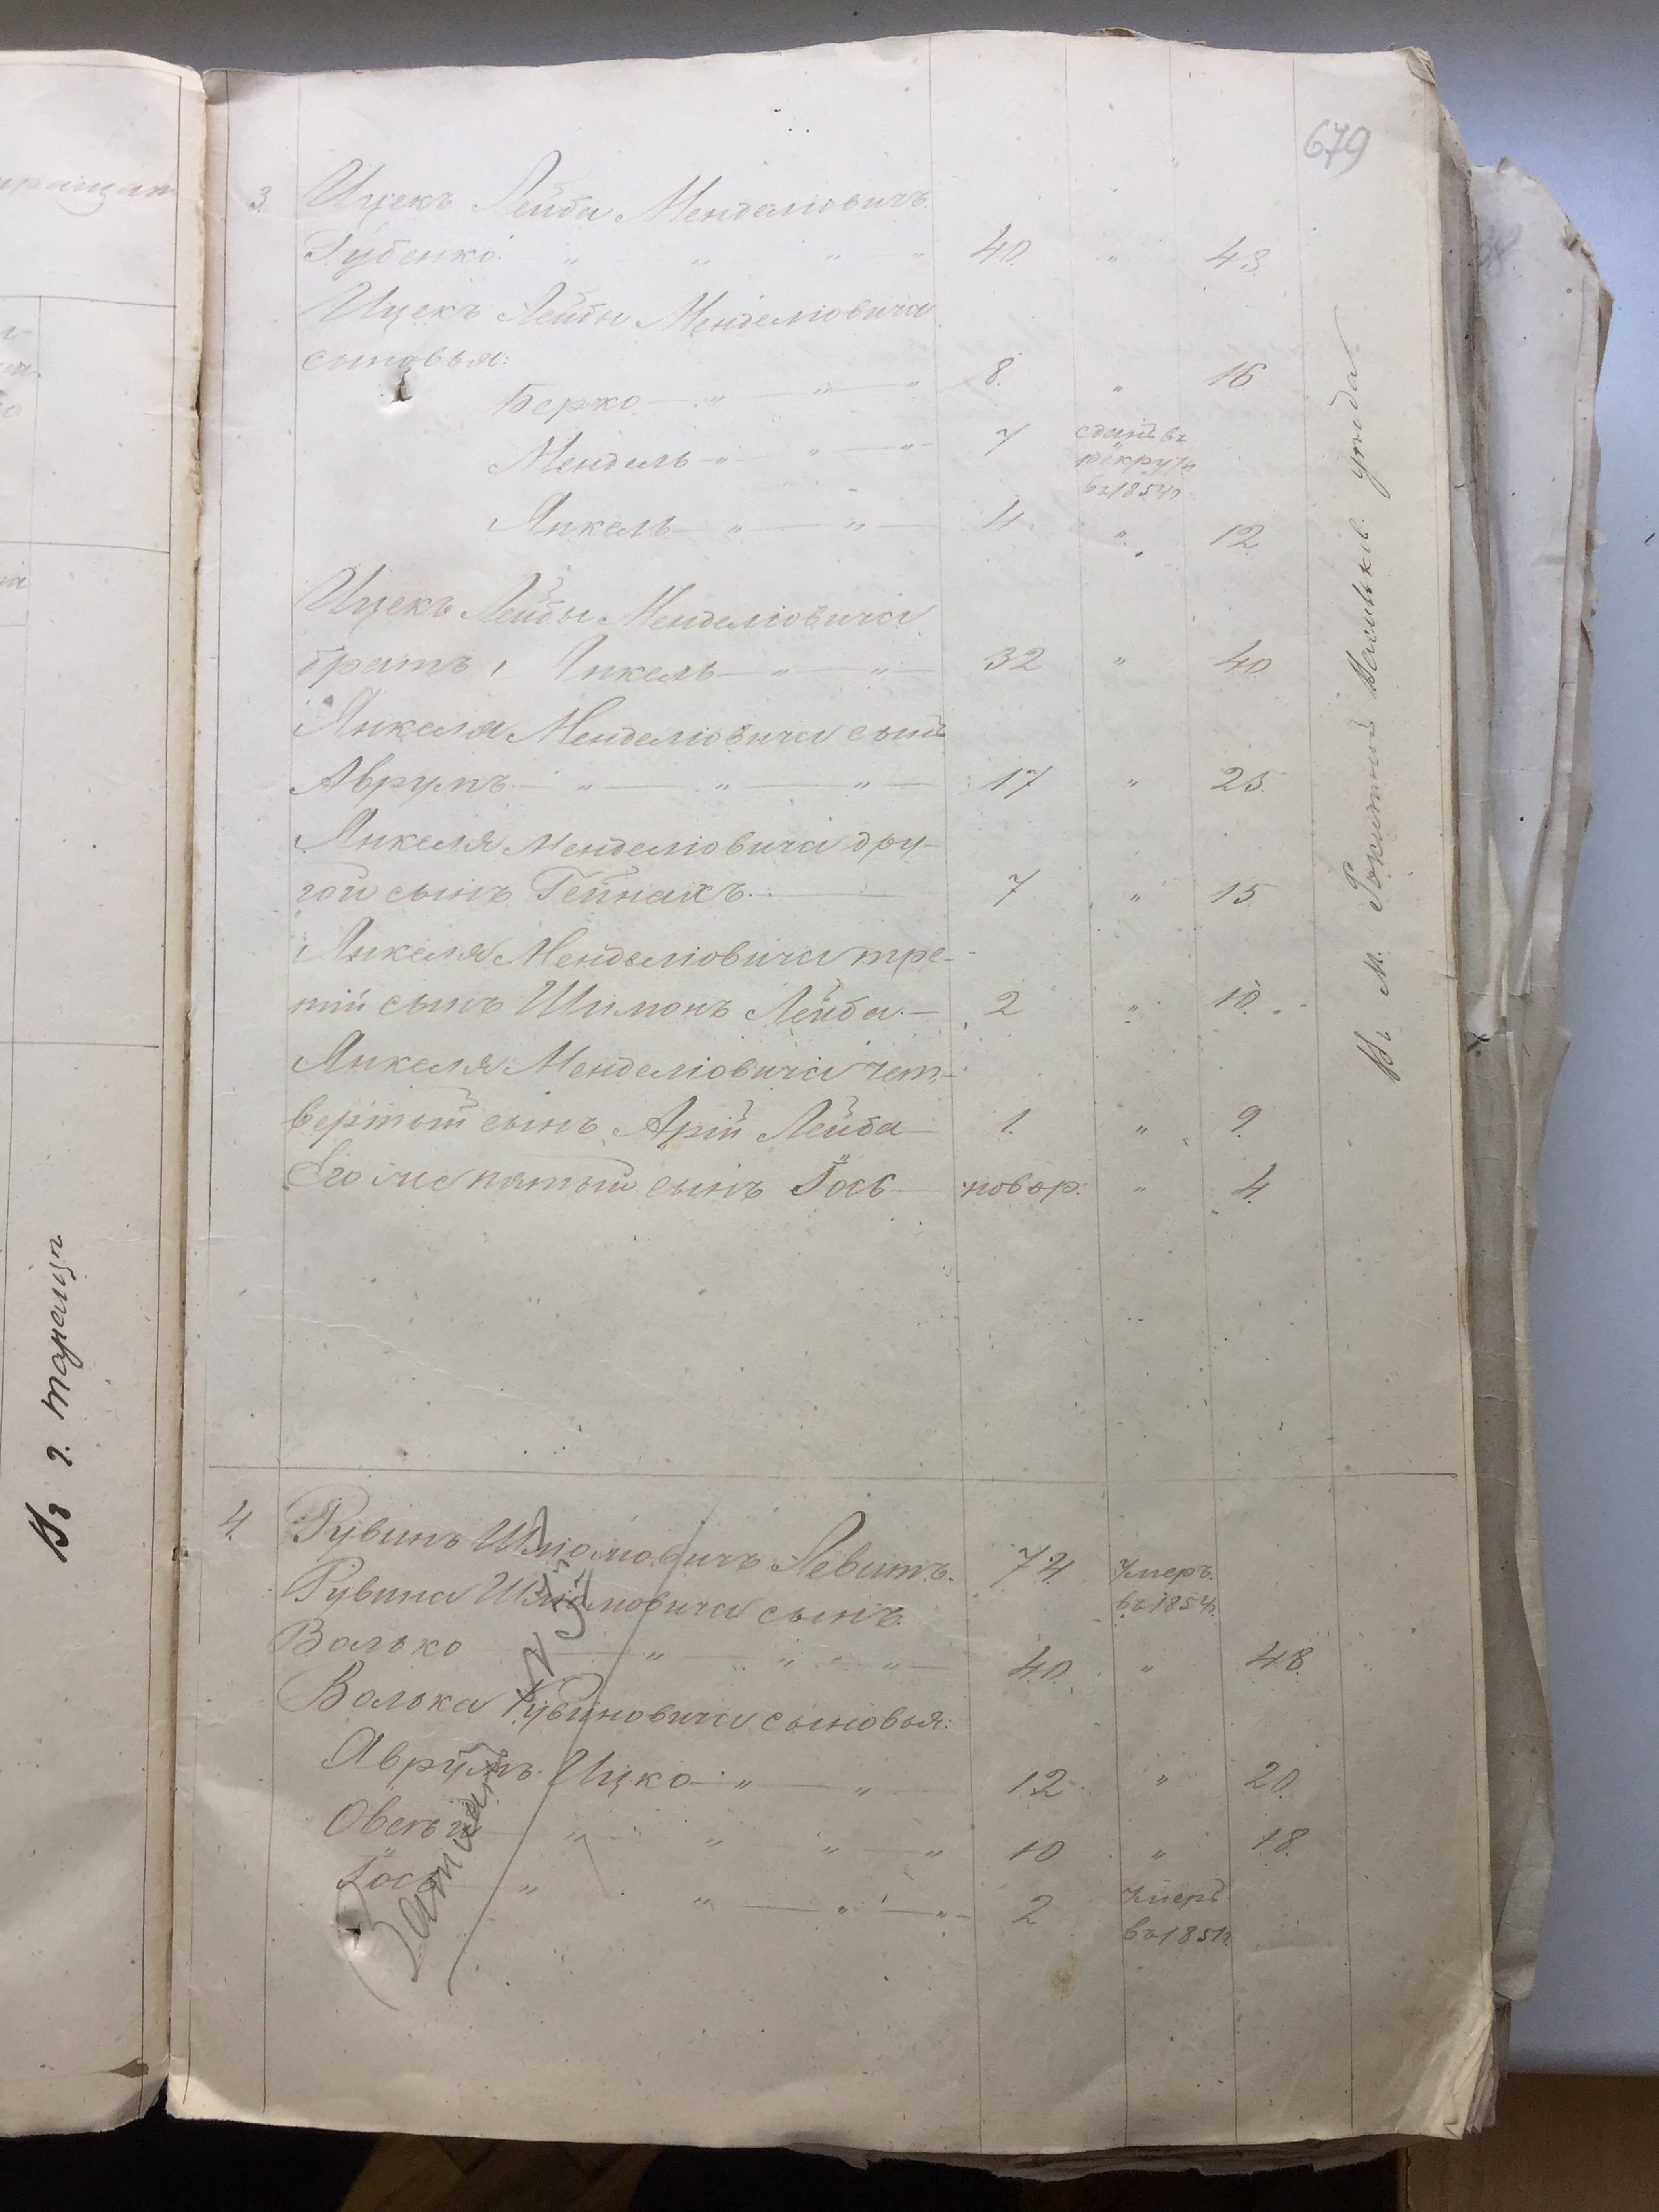 679
3. Ицекъ Лейба Менделіовичъ
Губенко " " " " 40. " 48.
Ицекъ Лейбы Менделіовича
сыновья:
Берко " " " 8. " 16
Мендель " " " 7 сданъ въ
рекруты
въ 1854г.
Янкель " " 4. " 12.
Ицекъ Лейбы Менделіовича
братъ, Янкель " " 32 " 40
Янкеля Менделіовича сынъ
Аврумъ " " " 17 " 25.
Янкеля Менделіовича дру-
гой сынъ Гейнахъ 7 " 15.
Янкеля Менделіовича тре-
тій сынъ Шимонъ Лейба 2 " 10.
Янкеля Менделіовича чет-
вертый сынъ Арій Лейба 1. " 9.
Его же пятый сынъ Іось новор: " 4.
Въ М. Рокитной Васильков. уезда
4. Рувинъ Шліомовичъ Левитъ. 74. Умеръ
въ 1854г.
Рувина Шліомовича сынъ
Волько " " " 40. " 48.
Волька Рувиновича сыновья:
Аврумъ Ицко " " 12. " 20.
Овсей " " " " 10 " 18.
Іось " " " " 2 Умеръ
въ 1851г.
Въ г. Тараще